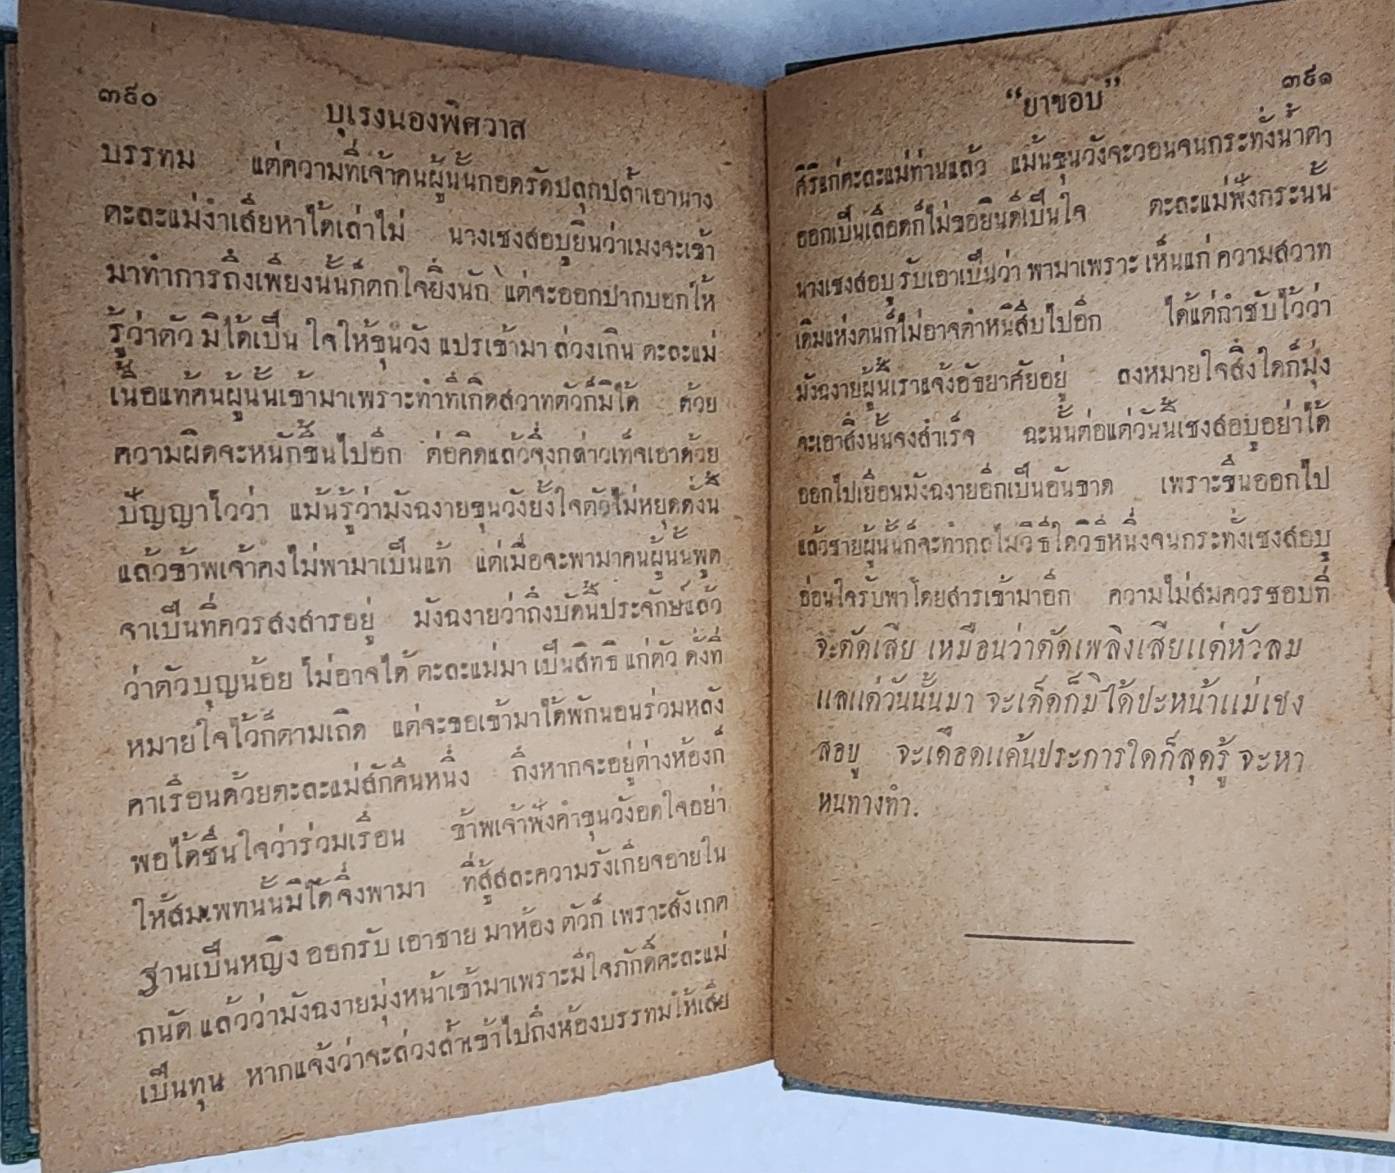 ๓๕๐
บุเรงนองพิศวาส
บรรทม แต่ความที่เจ้าคนผู้นั้นกอดรัดปลุกปล้ำเอานาง
ตะละแม่งำเสียหาได้เล่าไม่ นางเชงสอบุยินว่าเมงจะเข้า
มาทำการถึงเพียงนั้นก็ตกใจยิ่งนัก แต่จะออกปากบอกให้
รู้ว่าตัว มิได้เป็น ใจให้ขุนวัง แปรเข้ามา ล่วงเกิน ตะละแม่
เนื้อแท้คนผู้นั้นเข้ามาเพราะทำที่เกิดสวาทตัวก็มิได้ ด้วย
ความผิดจะหนักขึ้นไปอีก ต่อคิดแล้วจึ่งกล่าวเท็จเอาด้วย
ปัญญาไวว่า แม้นรู้ว่ามังฉงายขุนวังยั้งใจตัวไม่หยุดดั่งนี้
แล้วข้าพเจ้าคงไม่พามาเป็นแท้ แต่เมื่อจะพามาคนผู้นั้นพูด
จาเป็นที่ควรสงสารอยู่ มังฉงายว่าถึงบัดนี้ประจักษ์แล้ว
ว่าตัวบุญน้อย ไม่อาจได้ ตะละแม่มา เป็นสิทธิ แก่ตัว ดั่งที่
หมายใจไว้ก็ตามเถิด แต่จะขอเข้ามาได้พักนอนร่วมหลัง
คาเรือนด้วยตะละแม่สักคืนหนึ่ง ถึงหากจะอยู่ต่างห้องก็
พอได้ชื่นใจว่าร่วมเรือน ข้าพเจ้าฟังคำขุนวังอดใจอย่า
ให้สมเพทนั้นมิได้จึ่งพามา ที่สู้สละความรังเกียจอายใน
ฐานเป็นหญิง ออกรับ เอาชาย มาห้อง ตัวก็ เพราะสังเกต
ถนัด แล้วว่ามังฉงายมุ่งหน้าเข้ามาเพราะมีใจภักดิ์ตะละแม่
เป็นทุน หากแจ้งว่าจะล่วงล้ำเข้าไปถึงห้องบรรทมให้เสีย
"ยาขอบ"
๓๕๑
ศิริแก่ตะละแม่ท่านแล้ว แม้นขุนวังจะวอนจนกระทั่งน้ำตา
ออกเป็นเลือดก็ไม่ขอยินดีเป็นใจ ตะละแม่ฟังกระนั้น
นางเชงสอบุ รับเอาเป็นว่า พามาเพราะ เห็นแก่ ความสวาท
เดิมแห่งตนก็ไม่อาจตำหนิสืบไปอีก ได้แต่กำชับไว้ว่า
มังฉงายผู้นี้เราแจ้งอัธยาศัยอยู่ ลงหมายใจสิ่งใดก็มุ่ง
จะเอาสิ่งนั้นจงสำเร็จ ฉะนั้นต่อแต่วันนี้เชงสอบุอย่าได้
ออกไปเยือนมังฉงายอีกเป็นอันขาด เพราะขืนออกไป
แล้วชายผู้นั้นก็จะทำกลไม่วิธีใดวิธีหนึ่งจนกระทั่งเชงสอบุ
อ่อนใจรับพาโดยสารเข้ามาอีก ความไม่สมควรชอบที่
จะตัดเสีย เหมือนว่าตัดเพลิงเสียแต่หัวลม
แลแต่วันนั้นมา จะเด็ดก็มิได้ปะหน้าแม่เชง
สอบุ จะเดือดแค้นประการใดก็สุดรู้ จะหา
หนทางทำ.